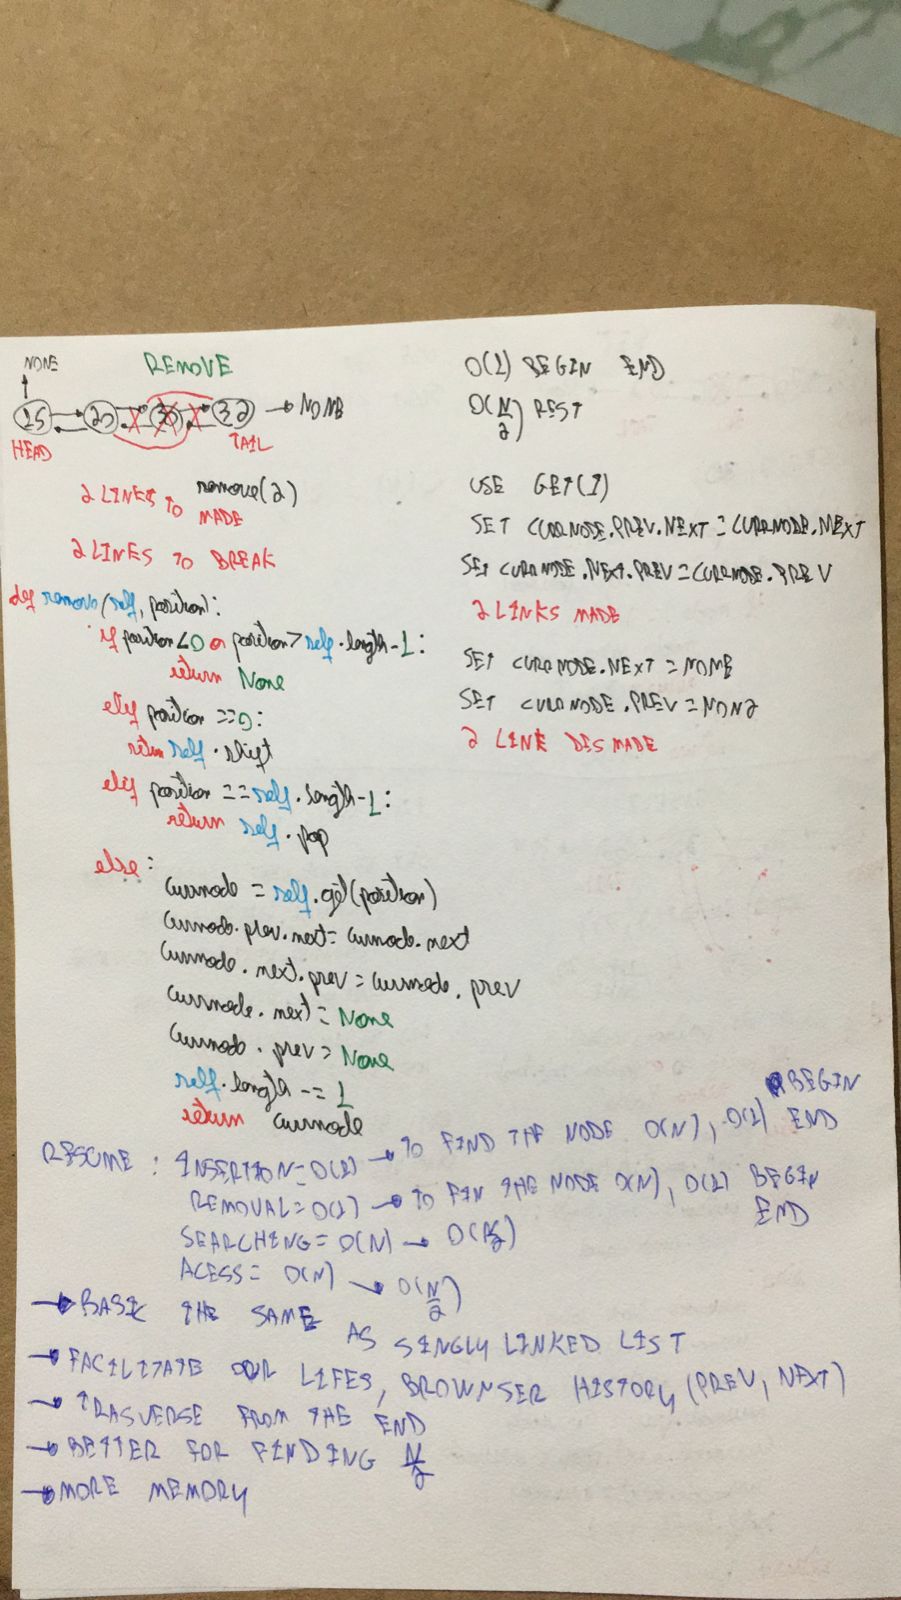 NONE
REMOVE
15 20 30 32 → NONE
HEAD
TAIL
remove(2)
2 LINES TO MADE
2 LINES TO BREAK
def remove(self, position):
if position<0 or position>self.length-1:
return None
elif position ==0:
return self.shift
elif position ==self.length-1:
return self.pop
else:
currnode = self.get(position)
currnode.prev.next= currnode.next
currnode.next.prev = currnode.prev
currnode.next = None
currnode.prev = None
self.length -= 1
return currnode
O(1) BEGIN END
O(N/2) REST
USE GET(I)
SET CURRNODE.PREV.NEXT = CURRNODE.NEXT
SET CURRNODE.NEXT.PREV = CURRNODE.PREV
2 LINKS MADE
SET CURRNODE.NEXT = NONE
SET CURRNODE.PREV = NONE
2 LINK DISMADE
RESUME: INSERTION= O(1) → TO FIND THE NODE O(N), O(1) BEGIN END
REMOVAL= O(1) → TO FIN THE NODE O(N), O(1) BEGIN END
SEARCHING= O(N) → O(N/2)
ACESS= O(N) → O(N/2)
→ BASIC THE SAME AS SINGLY LINKED LIST
→ FACILITATE OUR LIFES, BROWNSER HISTORY (PREV, NEXT)
→ TRASVERSE FROM THE END
→ BETTER FOR FINDING N/2
→ MORE MEMORY